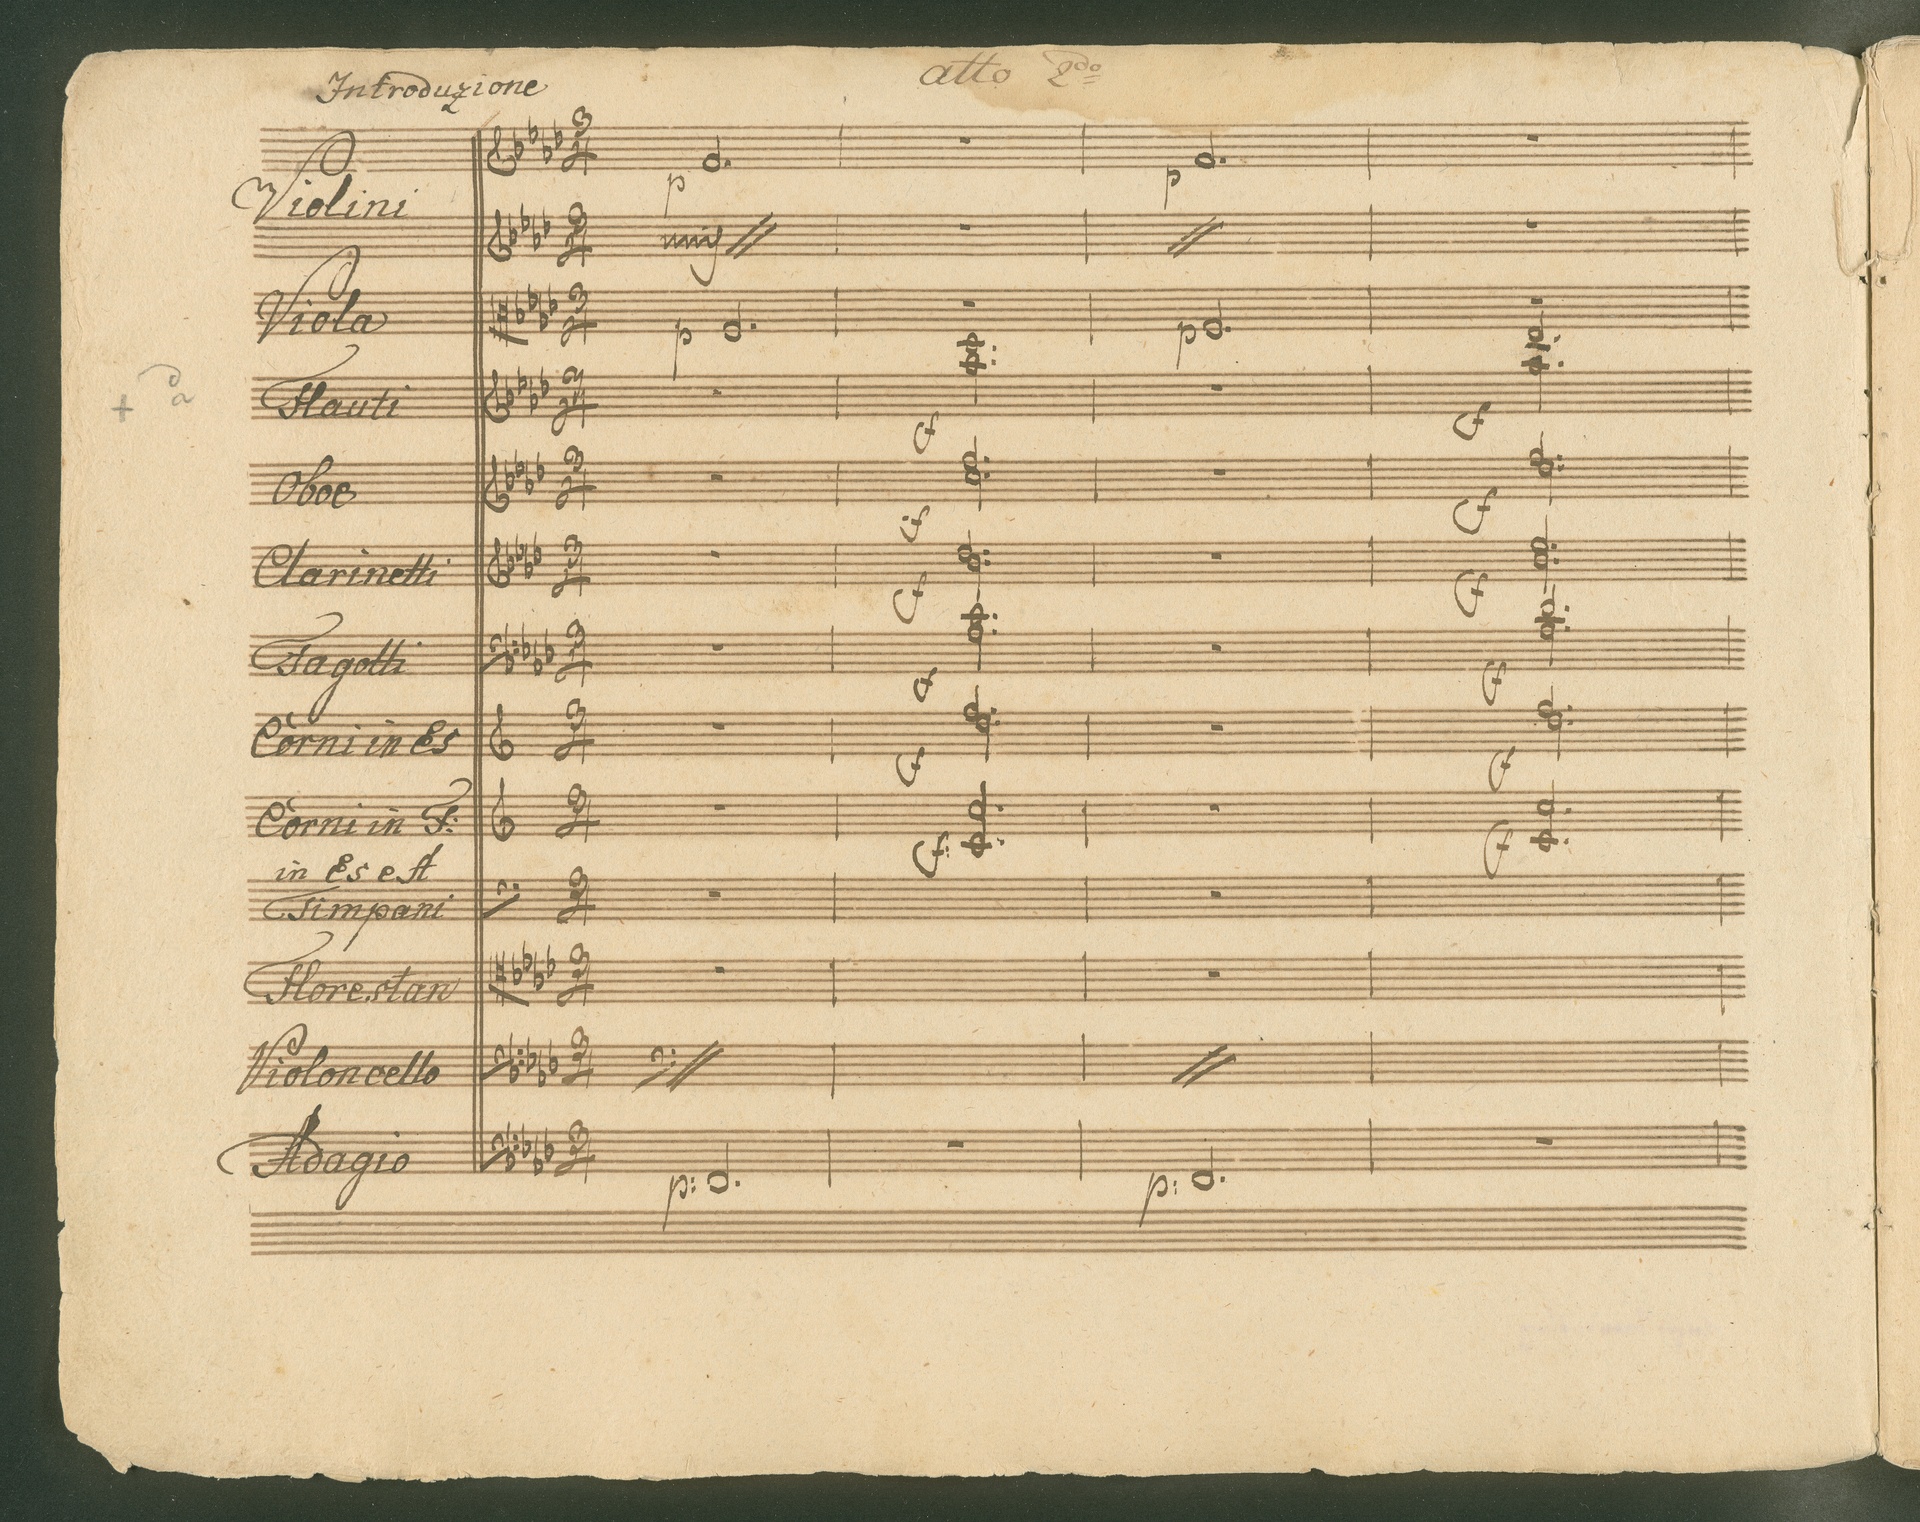 Introduzione
atto 2do
Violini
p
p
unis
Viola
p
p
+ d
a
Flauti
f
f
Oboe
f
f
Clarinetti
f
f
Fagotti
f
f
Corni in Es
f
f
Corni in F:
f:
f
in Es e A
Timpani
Florestan
Violoncello
Adagio
p:
p: